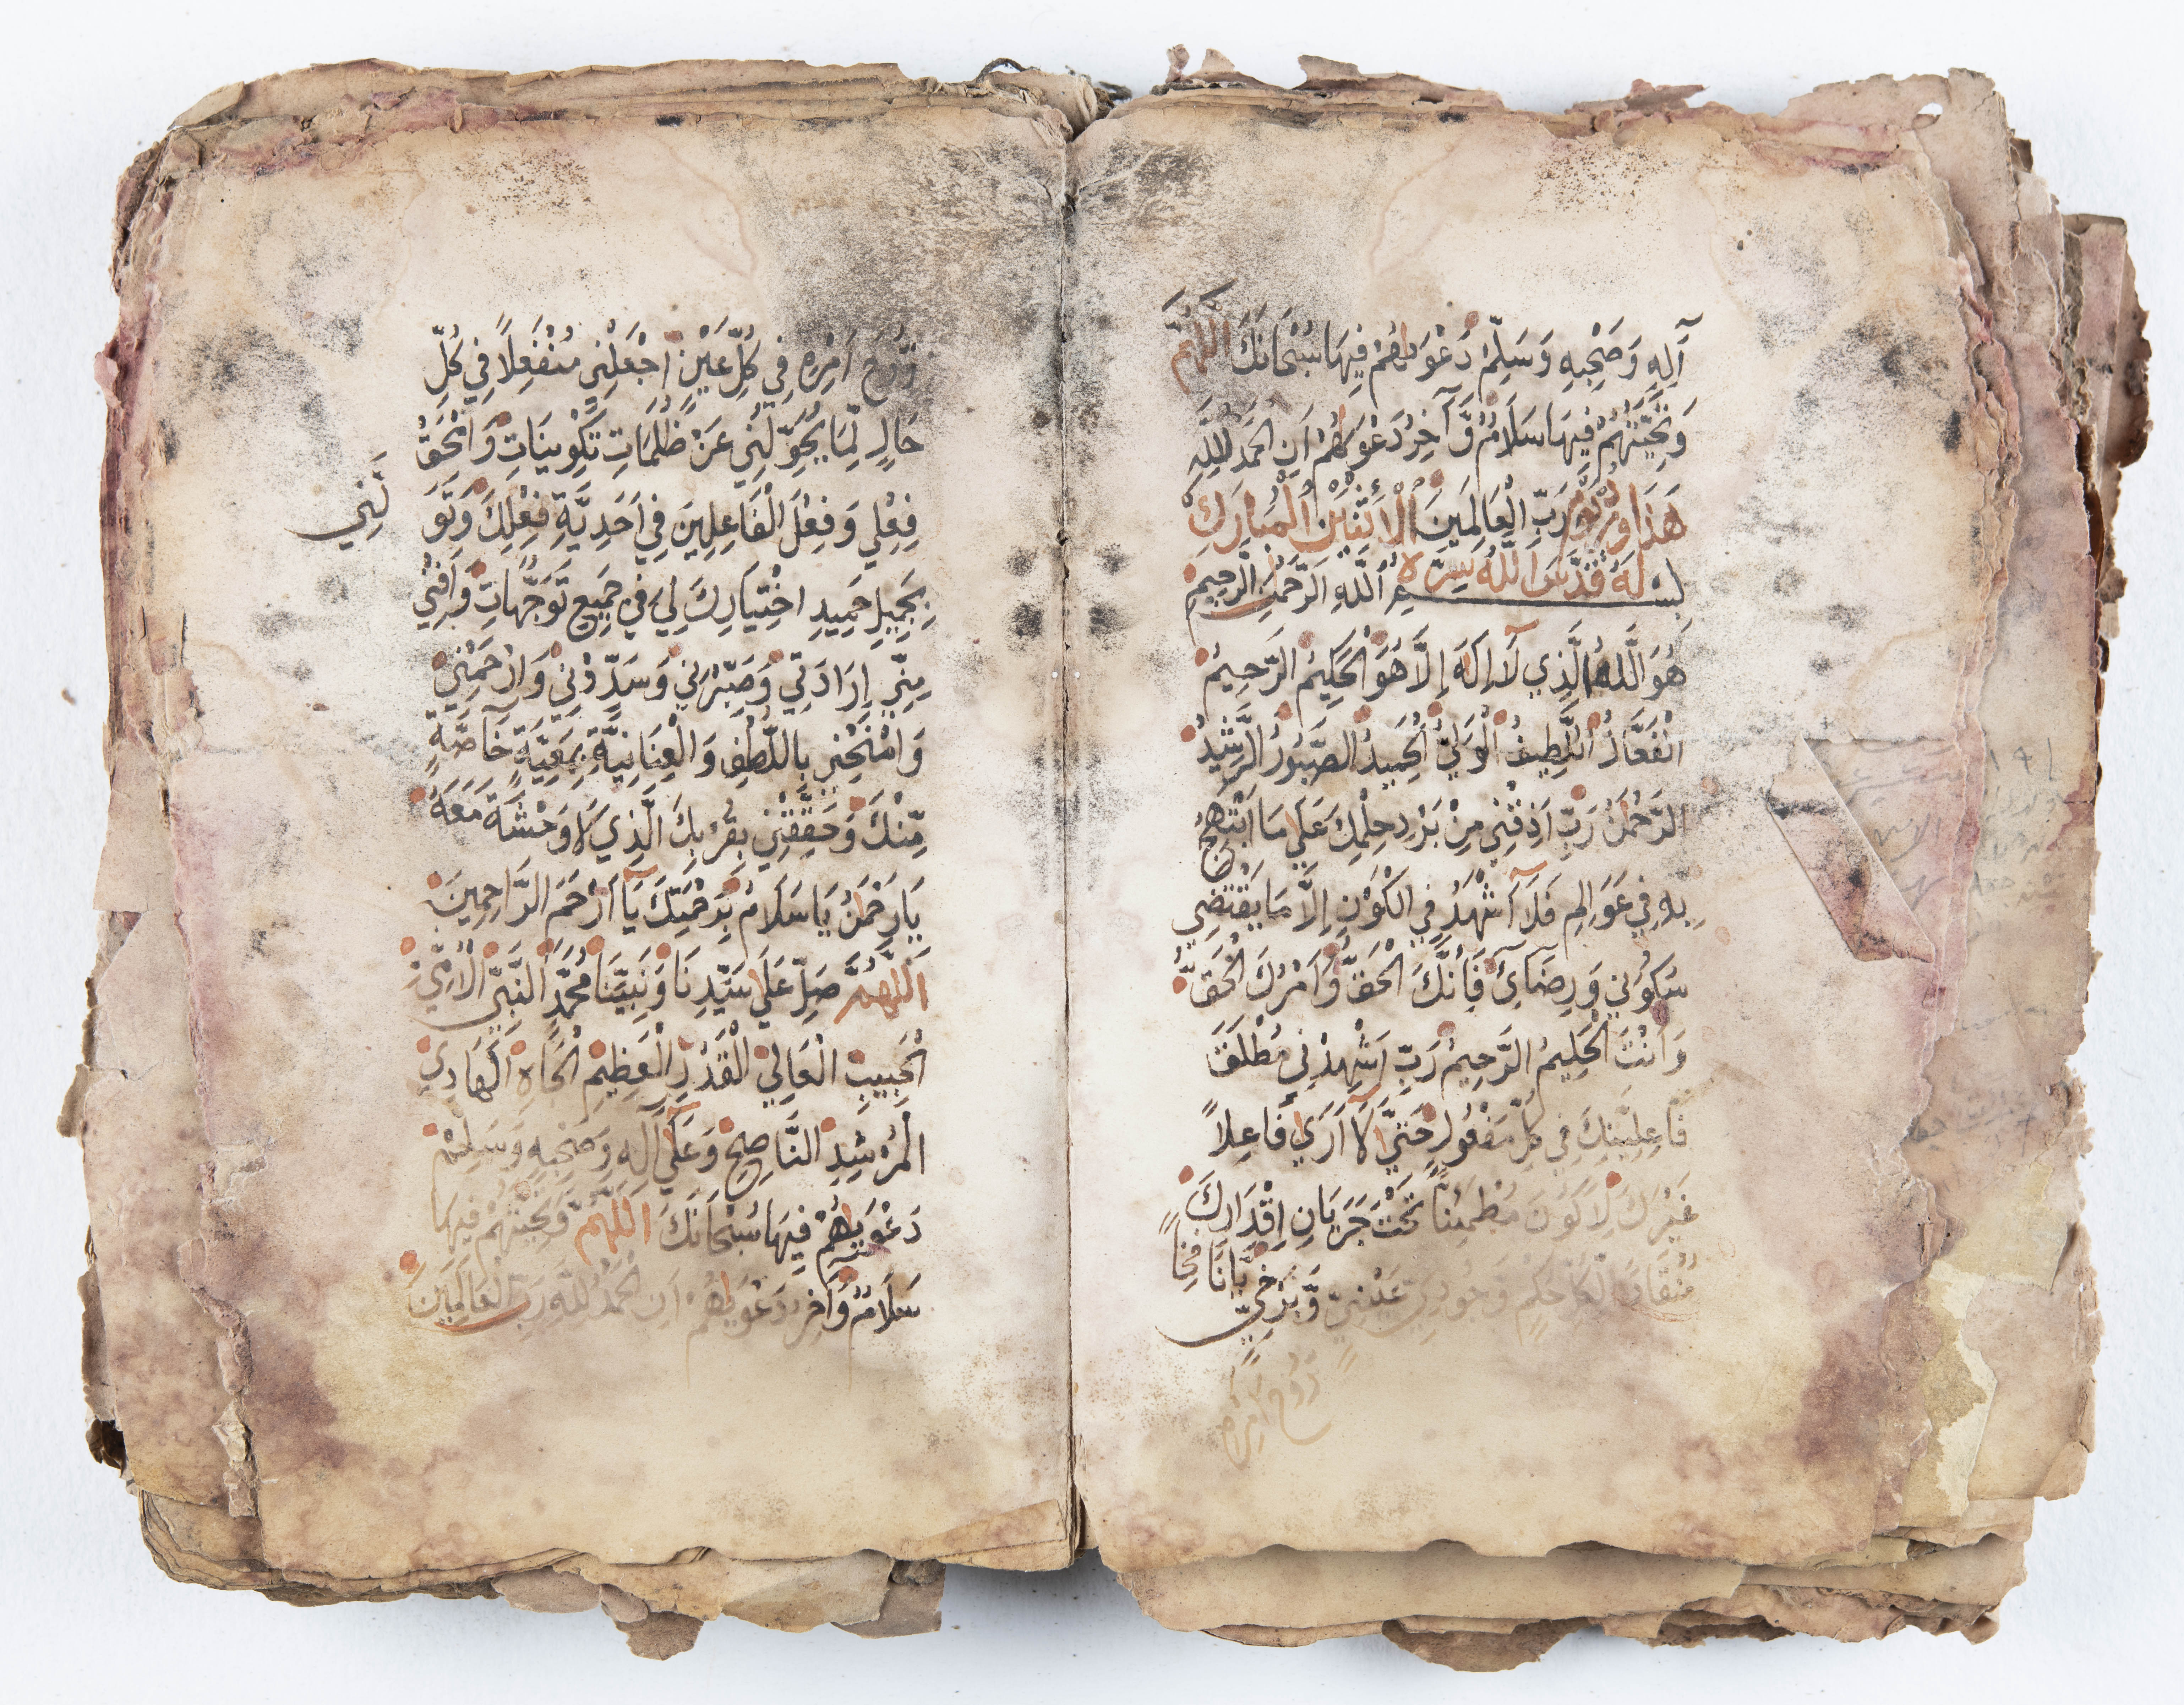 آلِهِ وَصَحْبِهِ وَسَلِّمْ دَعْوَىٰهُمْ فِيهَا سُبْحَانَكَ اللَّهُمَّ
وَتَحِيَّتُهُمْ فِيهَا سَلَامٌ وَّآخِرُ دَعْوَىٰهُمْ اَنِ الْحَمْدُ لِلّٰهِ
رَبِّ الْعَالَمِينَ هَذَا وِرْدُ يَوْمِ الْاِثْنَيْنِ الْمُبَارَكِ
لَهُ قَدَّسَ اللّٰهُ سِرَّهُ بِسْمِ اللّٰهِ الرَّحْمٰنِ الرَّحِيمِ
هُوَ اللّٰهُ الَّذِي لَآ اِلٰهَ اِلَّا هُوَ الْحَلِيمُ الرَّحِيمُ
الْفَعَّالُ اللَّطِيفُ الْوَلِيُّ الْحَمِيدُ الصَّبُورُ الرَّشِيدُ
الرَّحْمٰنُ رَبِّ اَذِقْنِي مِنْ بَرْدِ حِلْمِكَ عَلَيَّ مَا اَبْتَهِجُ
بِهِ فِي عَوَالِمِي فَلَآ اَشْهَدُ فِي الْكَوْنِ اِلَّا مَا يَقْتَضِي
سُكُوْنِي وَرِضَآئِي فَاِنَّكَ الْحَقُّ وَاَمْرُكَ الْحَقُّ
وَاَنْتَ الْحَلِيمُ الرَّحِيمُ رَبِّ اَشْهِدْنِي مُطْلَقَ
فَاعِلِيَّتِكَ فِي كُلِّ مَفْعُولٍ حَتّٰى لَآ اَرٰى فَاعِلًا
غَيْرَكَ لِاَكُوْنَ مُطْمَئِنًّا تَحْتَ جَرَيَانِ اِقْدَارِكَ
مُنْقَادًا لِّكُلِّ حُكْمٍ وُّجُودِيٍّ عَيْنِيٍّ وَّبَرْزَخِيٍّ يَا نَافِخًا
رُّوْحَ اَمْرِهِ
رُّوْحَ اَمْرِهِ فِي كُلِّ عَيْنٍ اجْعَلْنِي مُنْفَعِلًا فِي كُلِّ
حَالٍ لِّمَا يُحَوِّلُنِي عَنْ ظُلُمَاتِ تَكْوِينَاتِي وَالْحَقْ
فِعْلِي وَفِعْلَ الْفَاعِلِينَ فِي اَحَدِيَّةِ فِعْلِكَ وَتَوَ
لَّنِي
بِجَمِيلِ حَمِيدِ اخْتِيَارِكَ لِي فِي جَمِيعِ تَوَجُّهَاتِي وَاَفْنِ
مِنِّي اِرَادَتِي وَصَبِّرْنِي وَسَدِّدْنِي وَارْحَمْنِي
وَامْنَحْنِي بِاللُّطْفِ وَالْعِنَايَةِ بِمَعِيَّةٍ خَآصَّةٍ
مِّنْكَ وَحَقِّقْنِي بِقُرْبِكَ الَّذِي لَا وَحْشَةَ مَعَهُ
يَا رَحْمٰنُ يَا سَلَامُ بِرَحْمَتِكَ يَآ اَرْحَمَ الرَّاحِمِينَ
اَللّٰهُمَّ صَلِّ عَلَى سَيِّدِنَا وَنَبِيِّنَا مُحَمَّدٍ النَّبِيِّ الْاُمِّيِّ
الْحَبِيبِ الْعَالِي الْقَدْرِ الْعَظِيمِ الْجَاهِ الْهَادِي
الْمُرْشِدِ النَّاصِحِ وَعَلَى آلِهِ وَصَحْبِهِ وَسَلِّمْ
دَعْوَىٰهُمْ فِيهَا سُبْحَانَكَ اللّٰهُمَّ وَتَحِيَّتُهُمْ فِيهَا
سَلَامٌ وَآخِرُ دَعْوَىٰهُمْ اَنِ الْحَمْدُ لِلّٰهِ رَبِّ الْعَالَمِينَ